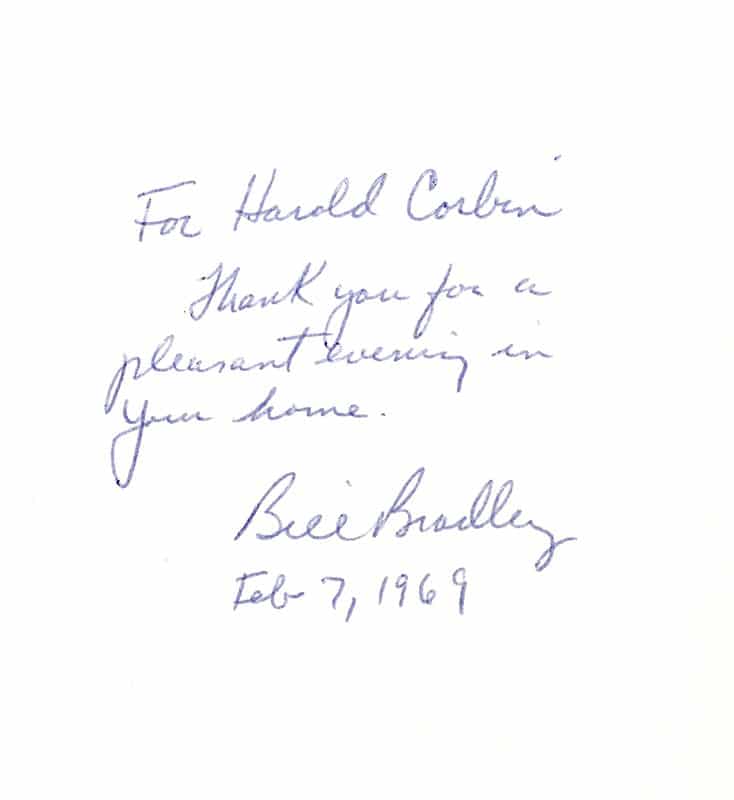 For Harold Corbin
Thank you for a
pleasant evening in
your home.
Bill Bradley
Feb 7, 1969